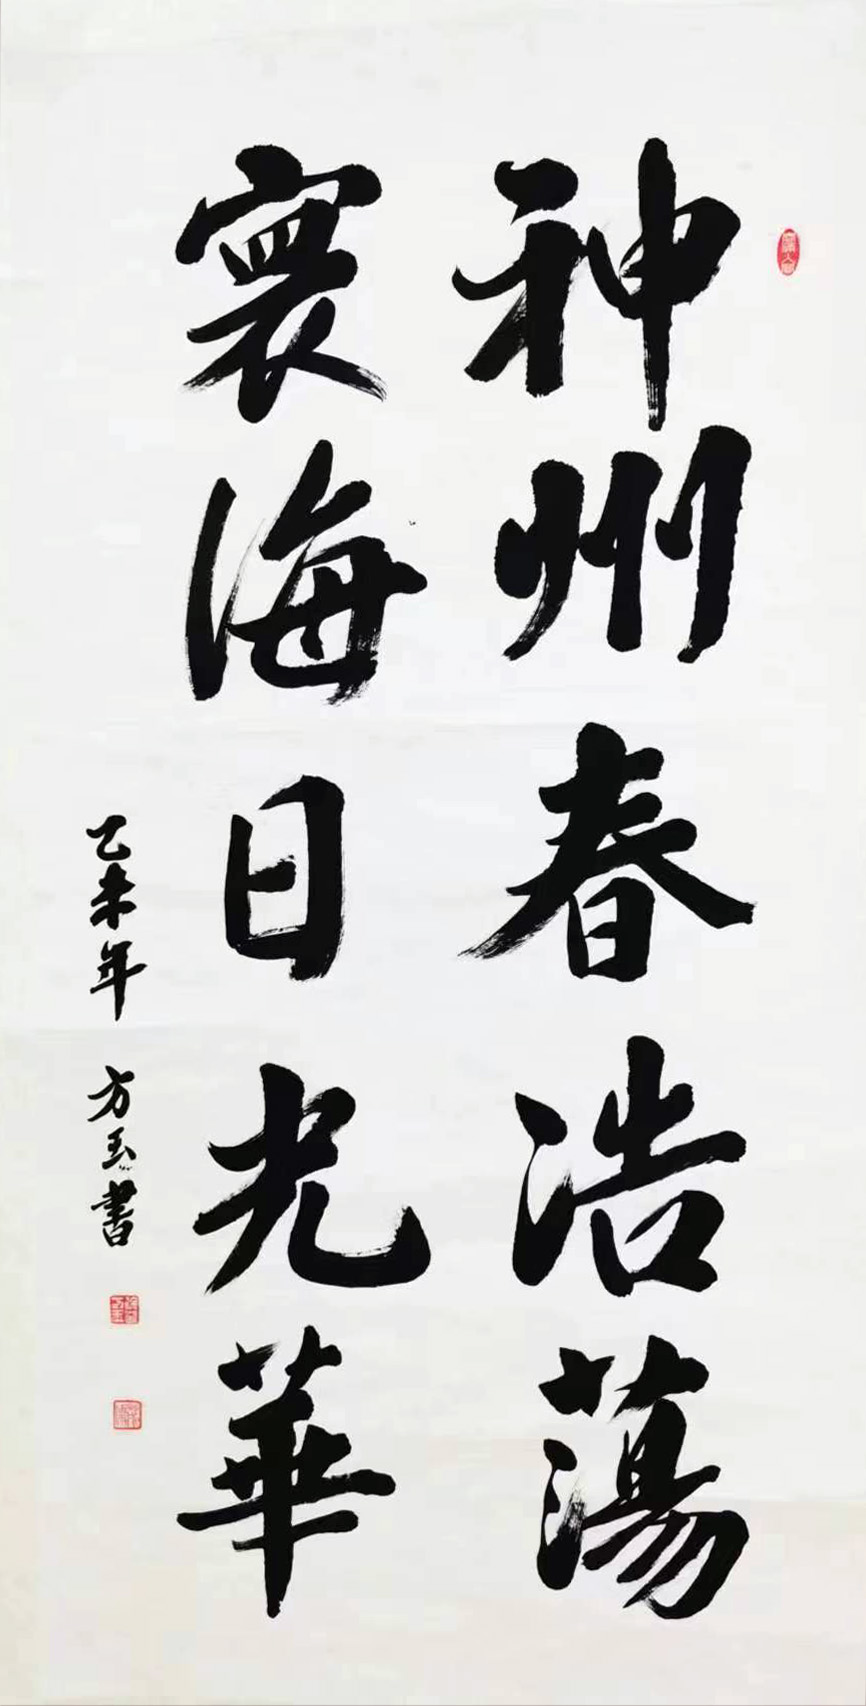 神州春浩蕩
寰海日光華
乙未年 方玉書